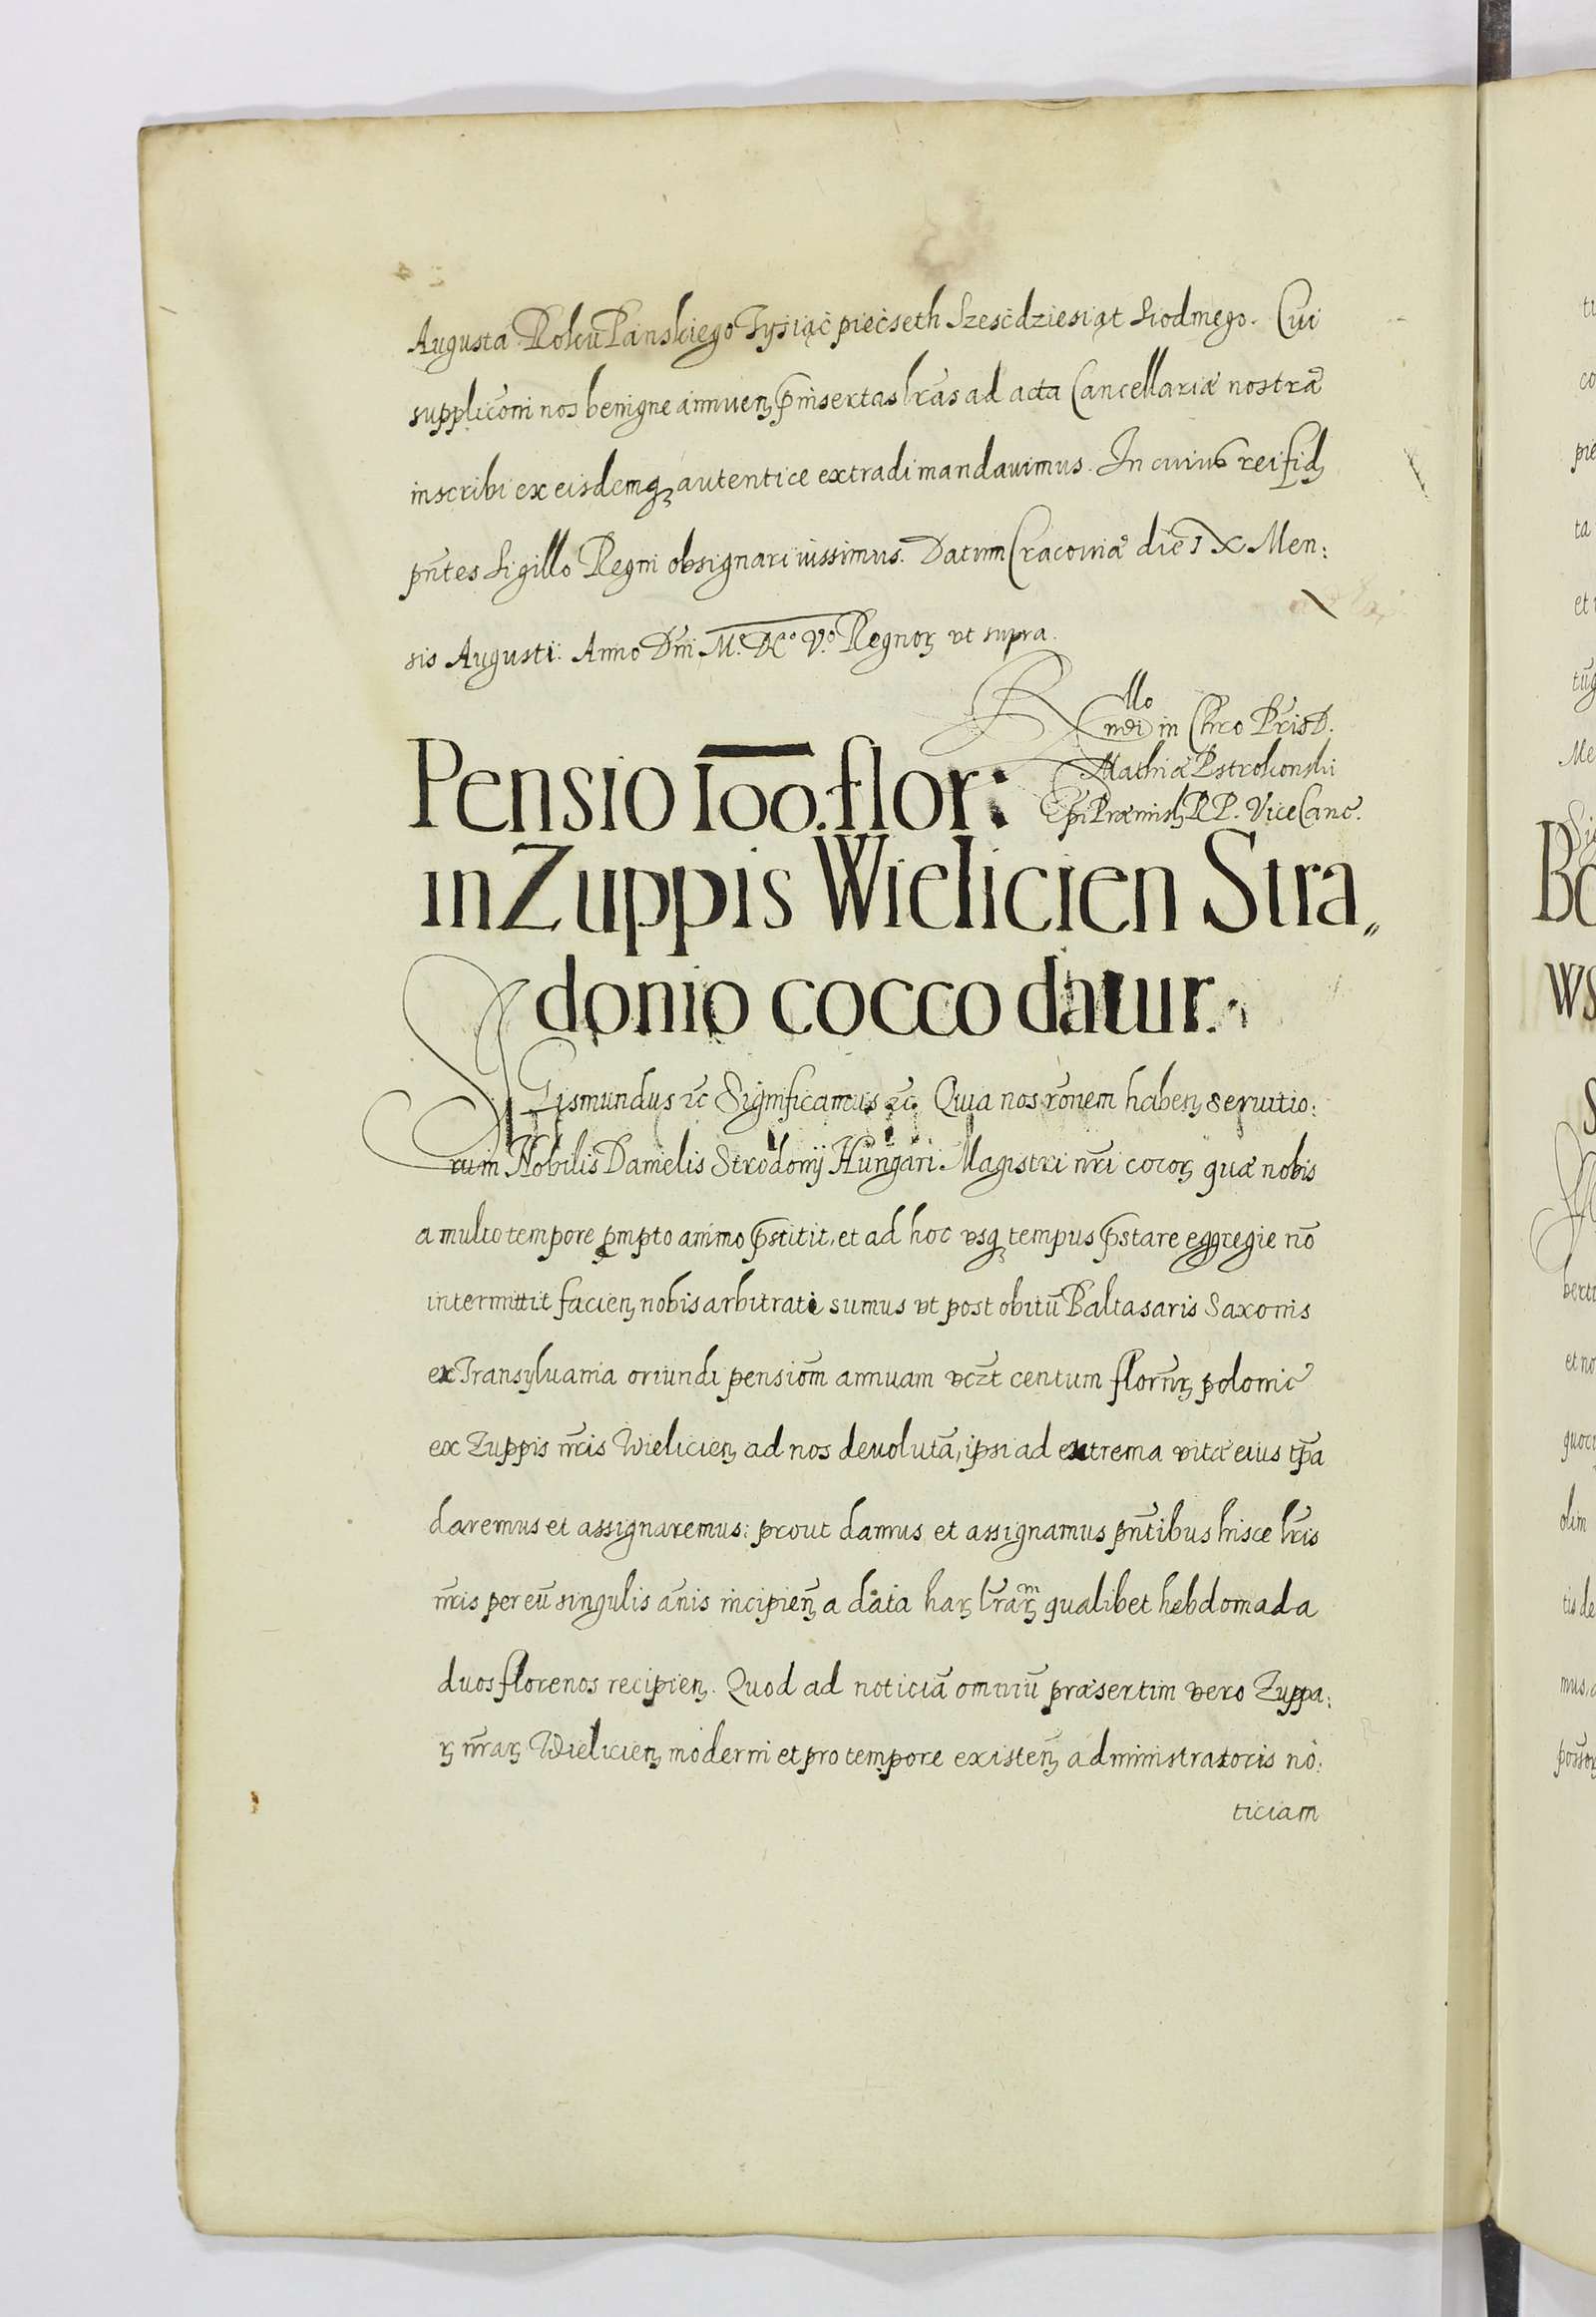 Augusta Roku Panskiego Tysiąć piećseth Szescdziesiąt Siodmego. Cui
suppliconi nos benigne annuen pinsertas lras ad acta Cancellariæ nostræ
inscribi ex eisdemq autentice extradi mandauimus. In cuius rei fid
pntes Sigillo Regni obsignari iussimus. Datum Cracouiæ die IX Men:
sis Augusti. Anno Dni M.º DCº V.º Regnoꝝ vt supra.
Rllo
ndi in Chro Pris D.
Mathiæ Pstrokonski
Epi Præmish R P. ViceCanc.
Pensio 100. flor:
in Zuppis Wielicien Stra„
donio cocco datur.
SIGismundus ꝛc Significamus ꝛc. Quia nos ronem haben seruitio:
rum Nobilis Danielis Strodonij Hungari Magistri nri cocoꝝ quæ nobis
a multo tempore pmpto animo pstitit, et ad hoc vsq tempus pstare eggregie no
intermittit facien nobis arbitrati sumus vt post obitu Baltasaris Saxonis
ex Transyluania oriundi pensiom annuam vczt centum flornꝝ polonic
ex Zuppis nris Wielicien ad nos deuoluta, ipsi ad extrema vitæ eius tpa
daremus et assignaremus: prout damus et assignamus pntibus hisce lris
nris per eu singulis anis incipien a data haꝝ lraꝝ qualibet hebdomada
duos florenos recipien. Quod ad noticia omniu præsertim vero Zuppa:
ꝝ nraꝝ Wielicien moderni et pro tempore existen administratoris no:
ticiam